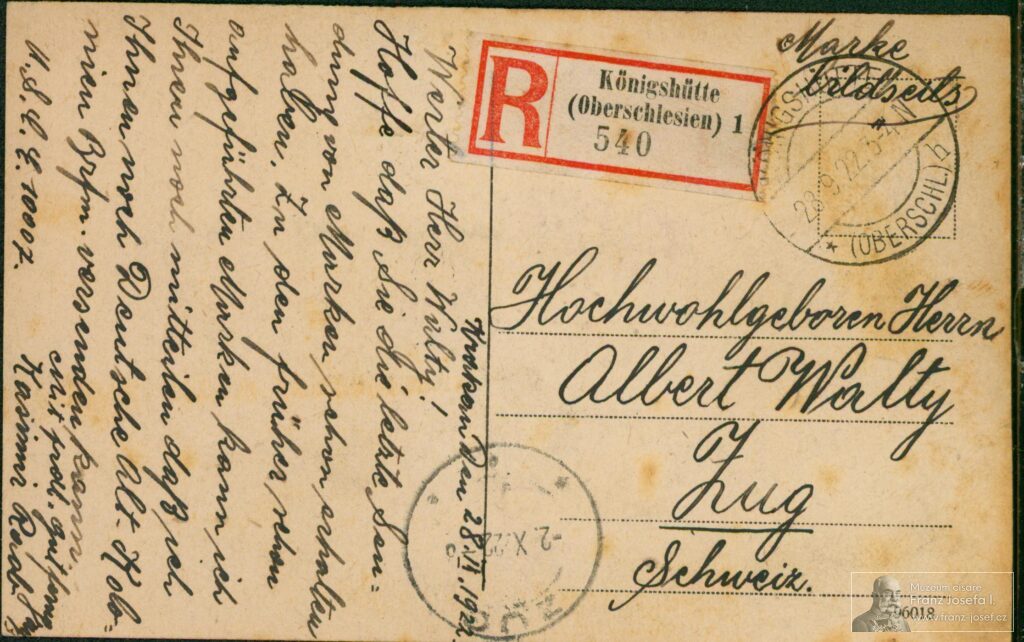 Marke
bildseits
R
Königshütte
(Oberschlesien) 1
540
KÖNIGSHÜTTE
28.9.22.5-6N
* (OBERSCHL.) b
Hochwohlgeboren Herrn
Albert Walty
Zug
Schweiz.
den 28.IX.1922.
Werter Herr Walty!
Hoffe daß Sie die letzte Sen-
dung von Marken schon erhalten
haben. In den früher schon
aufgeführten Marken kann ich
Ihnen noch mitteilen daß ich
Ihnen noch Deutsche Alt-Kolo-
nien Brfm. versenden kann.
Mit frdl.
Kasimir
-2.X.22
ZUG
96018
Muzeum císaře
Franz Josefa I.
www.franz-josef.cz